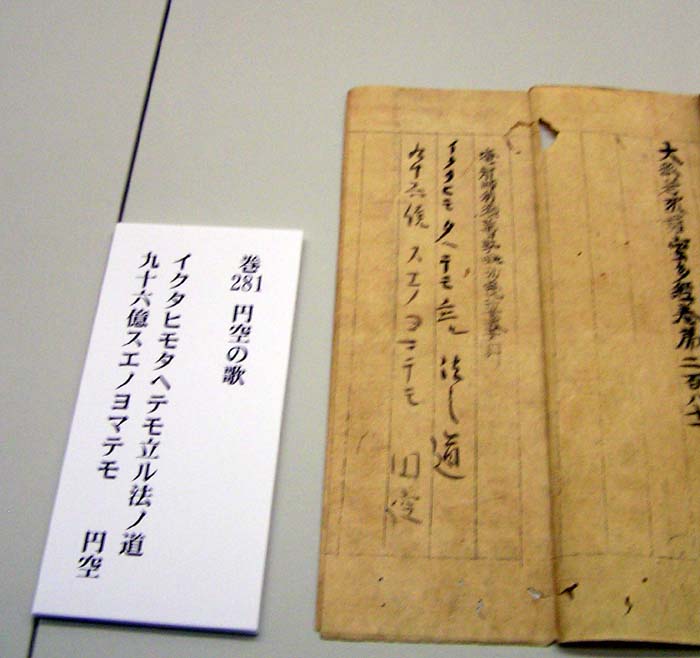 大般若波羅蜜多経巻第二百八十一
イクタヒモタヘテモ立ル法ノ道
九十六億スエノヨマテモ 円空
巻281 円空の歌
イクタヒモタヘテモ立ル法ノ道
九十六億スエノヨマテモ
円空